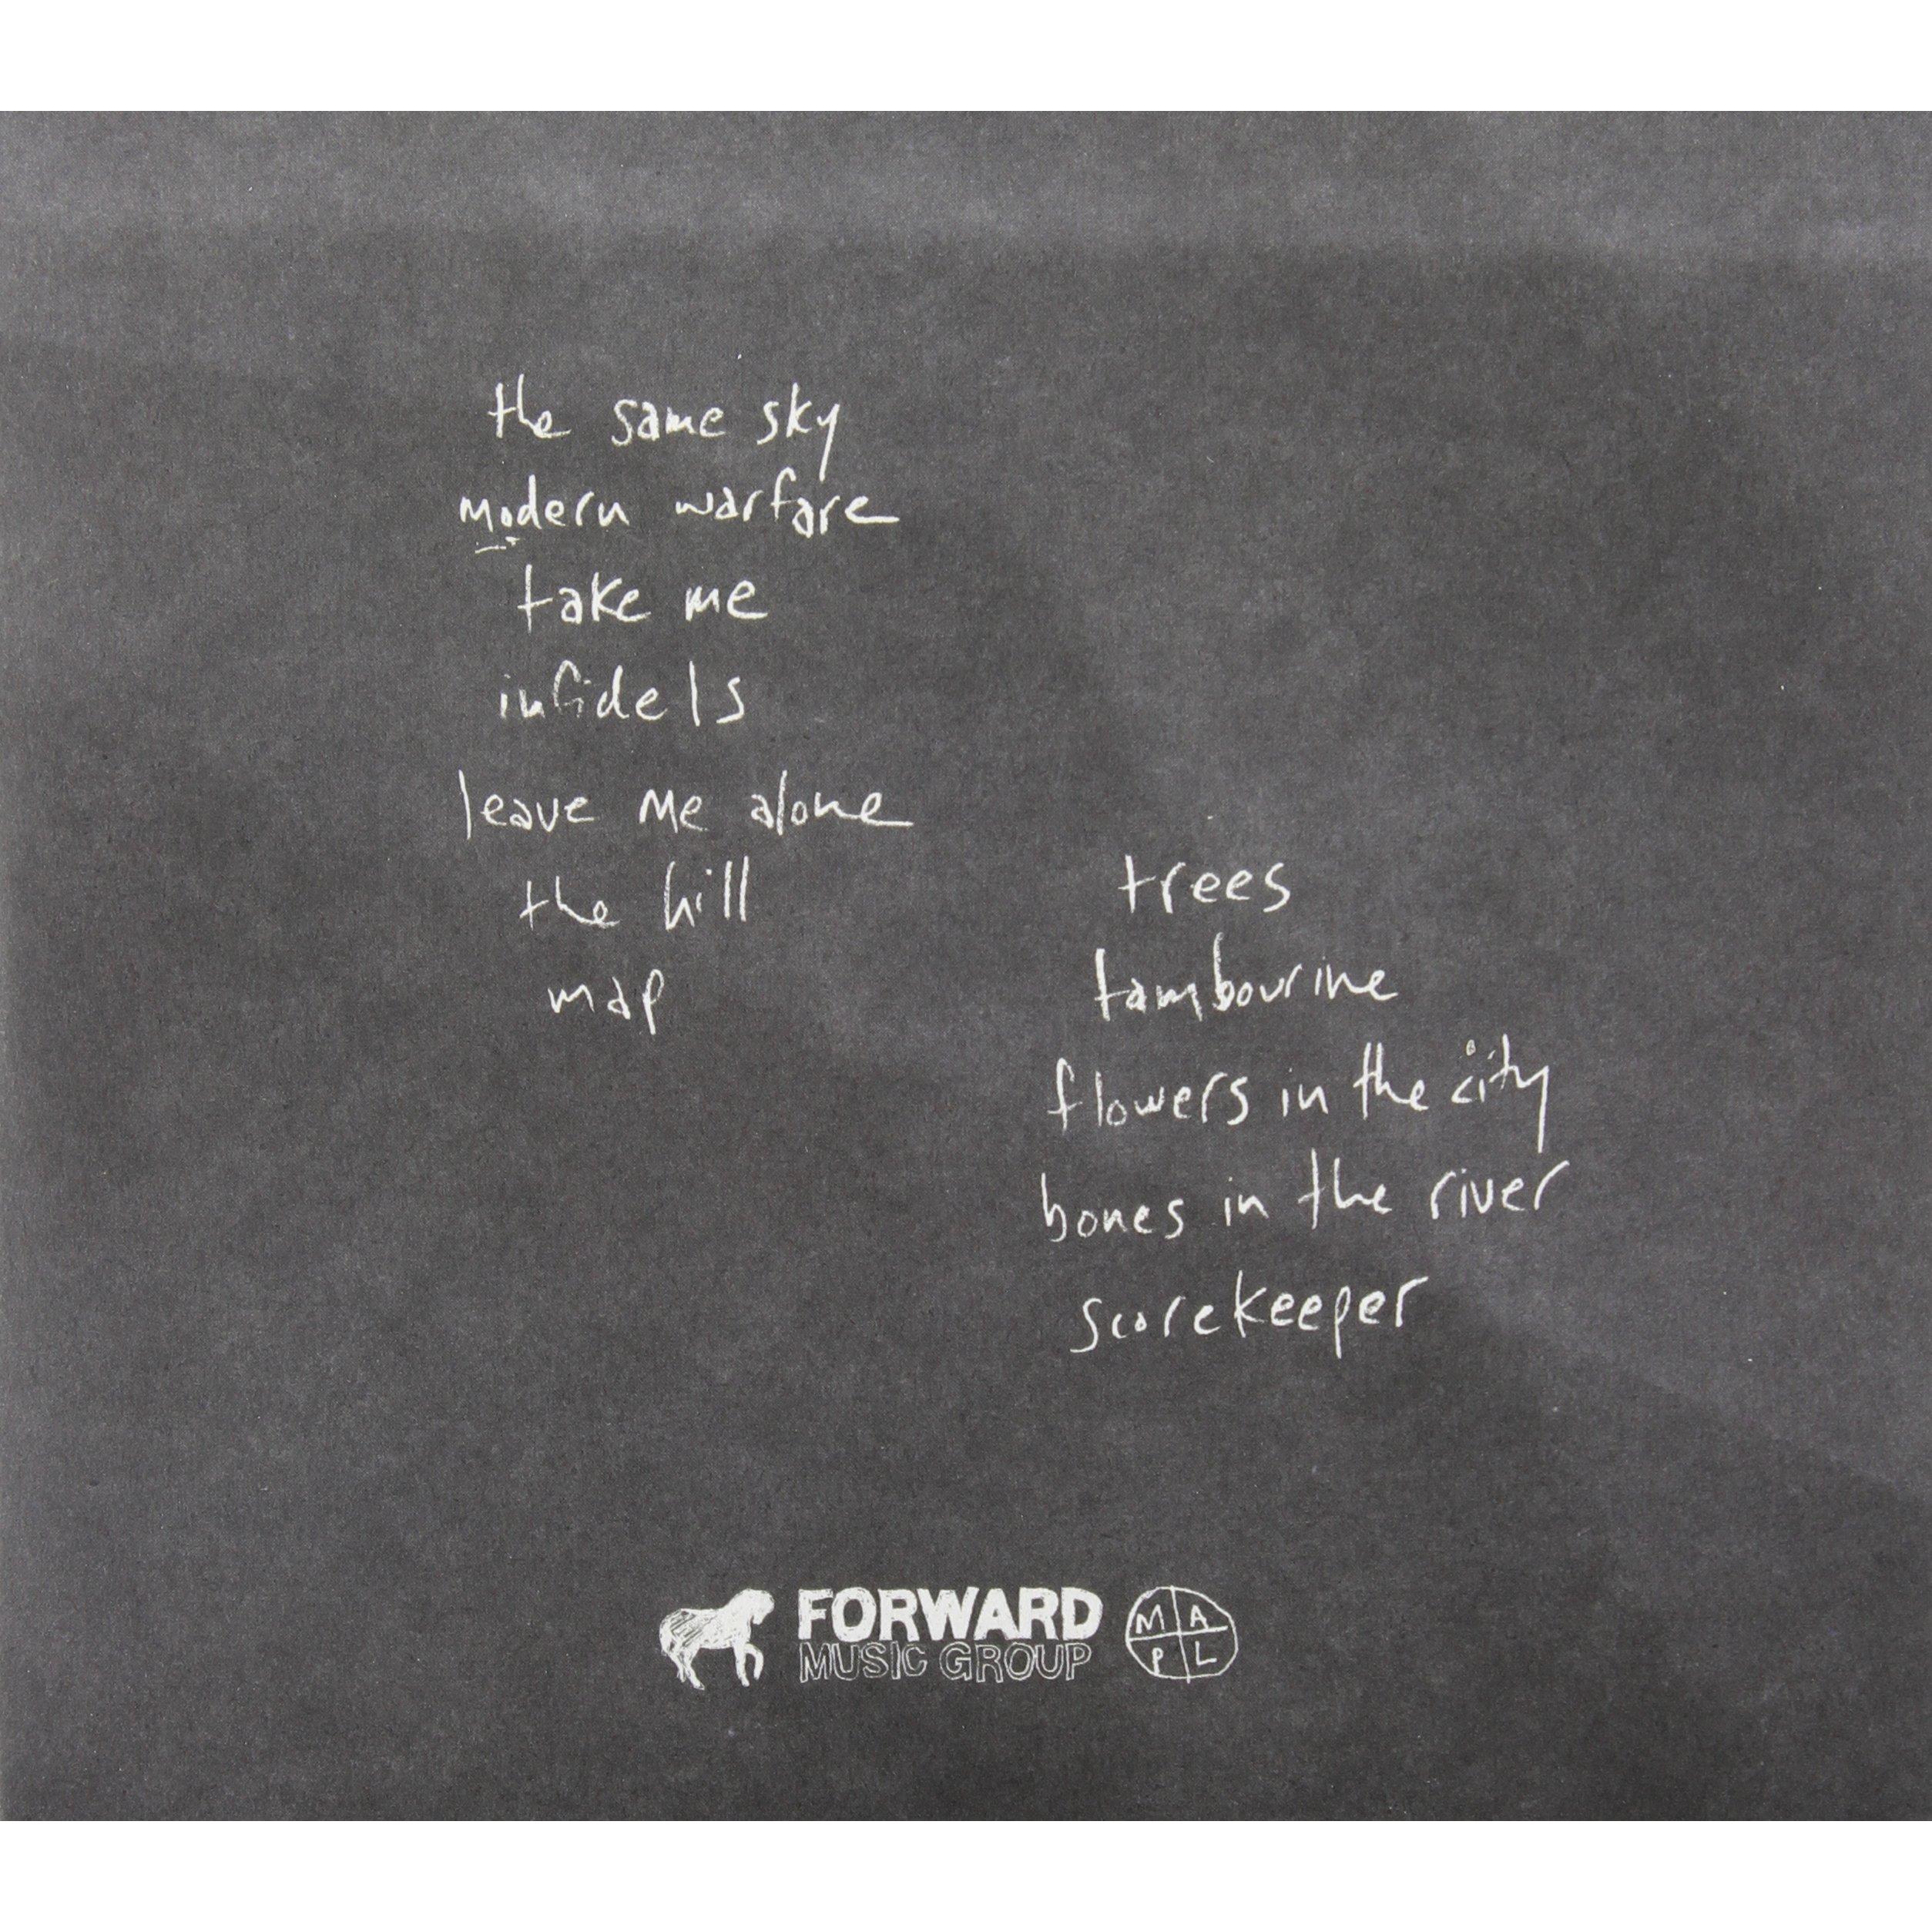 the same sky
modern warfare
take me
infidels
leave me alone
the hill
map
trees
tambourine
flowers in the city
bones in the river
scorekeeper
FORWARD
MUSIC GROUP
M A
P L